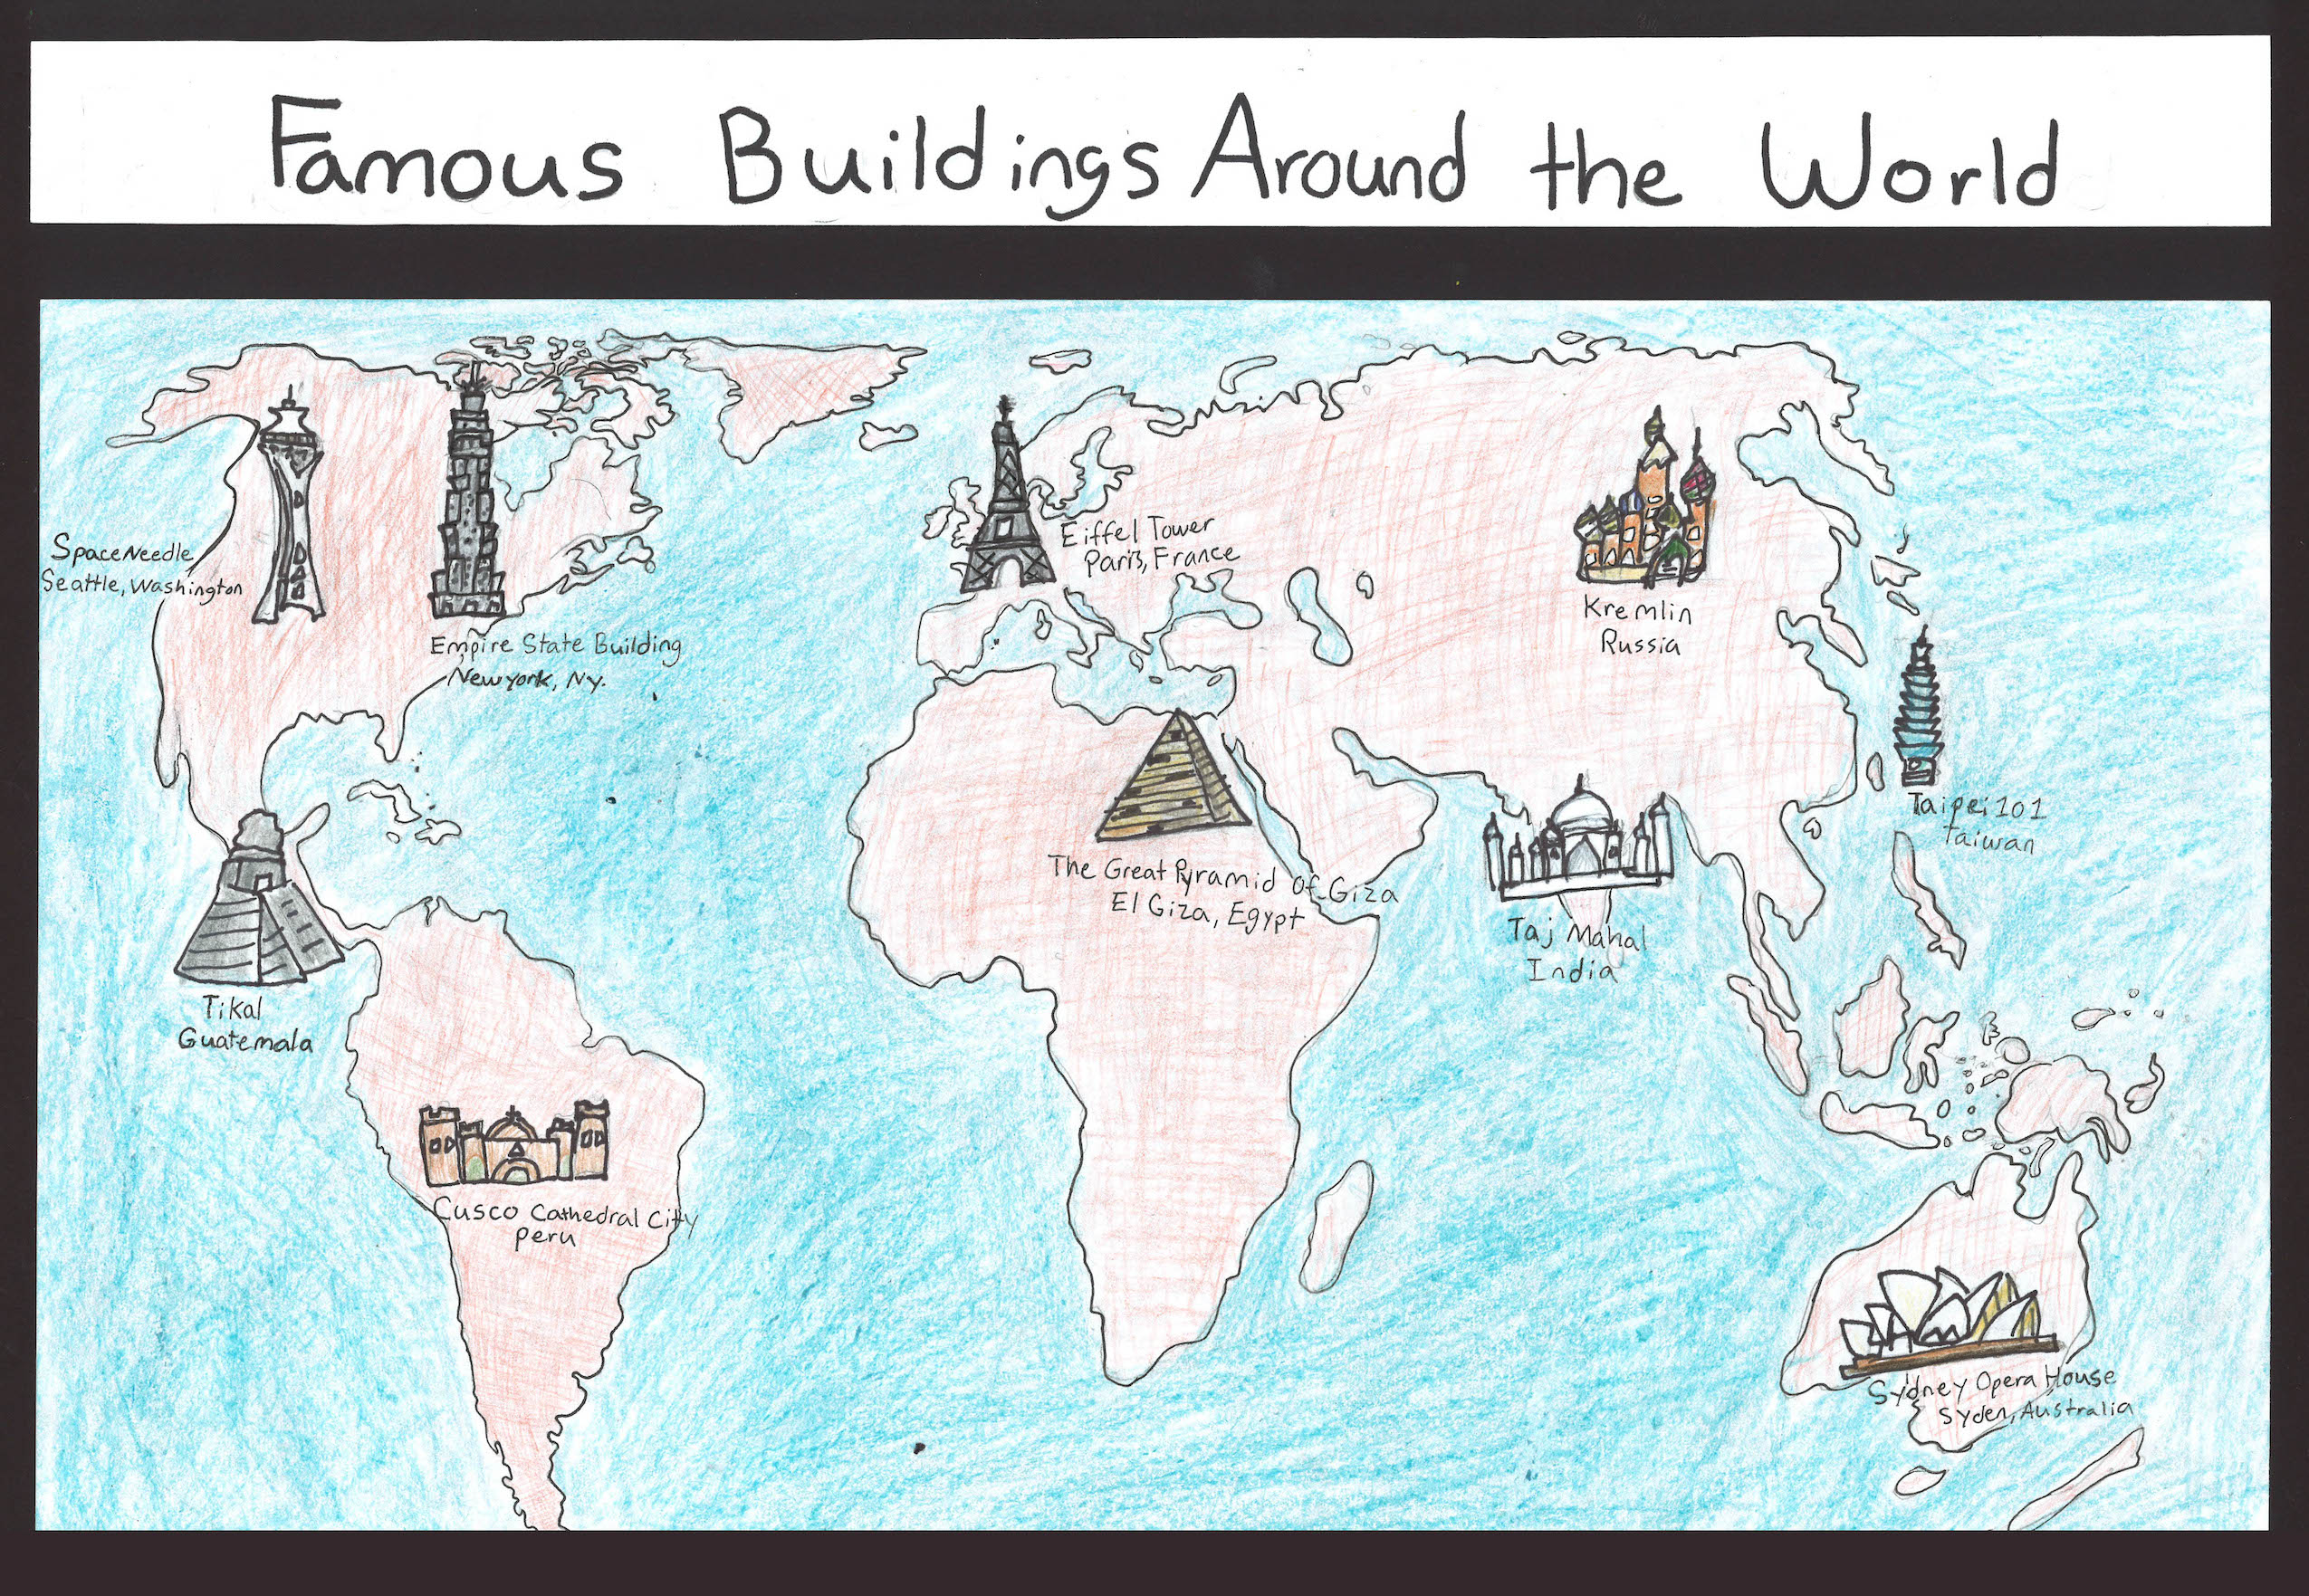 Famous Buildings Around the World
Space Needle
Seattle, Washington
Empire State Building
New york, Ny.
Eiffel Tower
Paris, France
Kremlin
Russia
Taipei 101
Taiwan
The Great Pyramid Of Giza
El Giza, Egypt
Taj Mahal
India
Tikal
Guatemala
Cusco Cathedral City
Peru
Sydney Opera House
Syden, Australia